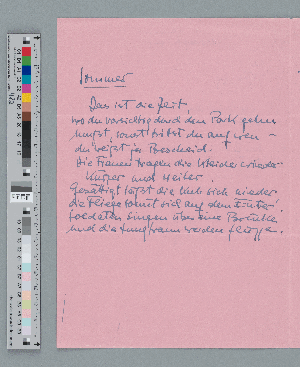 Sommer
Das ist die Zeit,
wo du vorsichtig durch den Park gehen
mußt, sonst trittst du auf wen –
du weißt ja Bescheid.
Die Frauen tragen die Kleider wieder
kürzer und weiter.
Gesättigt läßt die Kuh sich nieder
die Fliege sonnt sich auf dem Euter.
Soldaten singen über eine Brünette
und die Jungfrauen werden flügge.